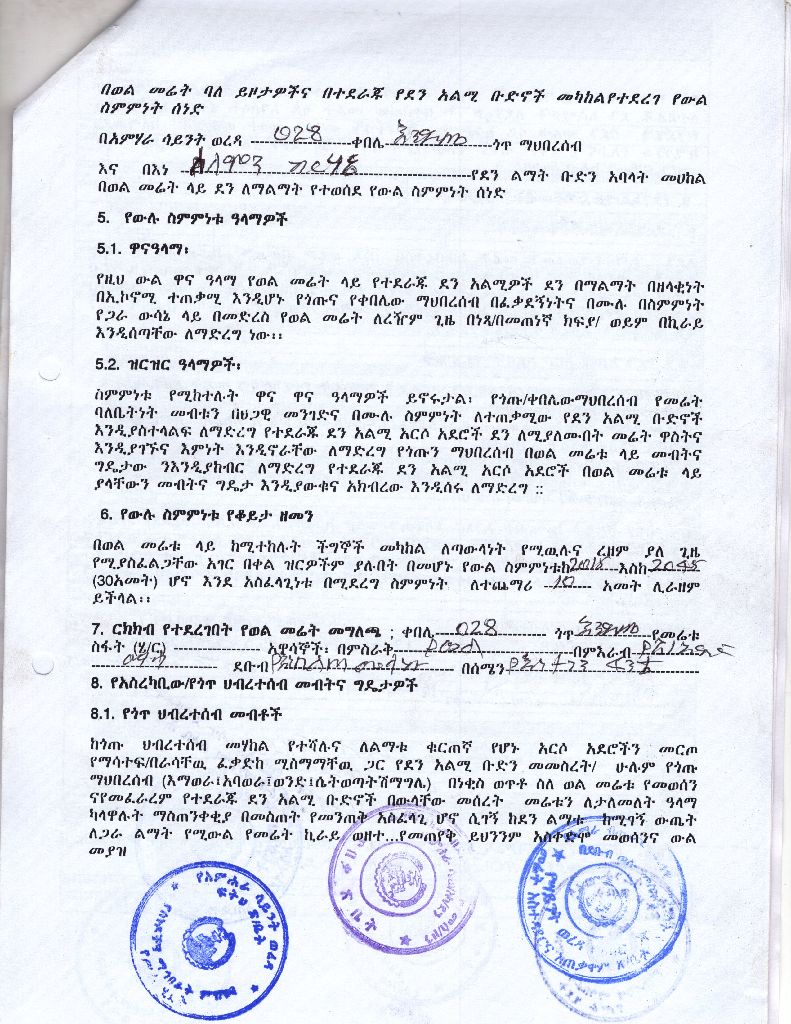 በወል መሬት ባለ ይዞታዎችና በተደራጁ የደን አልሚ ቡድኖች መካከልየተደረገ የውል
ስምምነት ሰነድ
በአምሃራ ሳይንት ወረዳ 028 ቀበሌ ጎጥ ማህበረሰብ
እና በእነ የደን ልማት ቡድን አባላት መሀከል
በወል መሬት ላይ ደን ለማልማት የተወሰደ የውል ስምምነት ሰነድ
5. የውሉ ስምምነቱ ዓላማዎች
5.1. ዋናዓላማ፡
የዚህ ውል ዋና ዓላማ የወል መሬት ላይ የተደራጁ ደን አልሚዎች ደን በማልማት በዘላቂነት
በኢኮኖሚ ተጠቃሚ እንዲሆኑ የጎጡና የቀበሌው ማህበረሰብ በፈቃደኝነትና በሙሉ በስምምነት
የጋራ ውሳኔ ላይ በመድረስ የወል መሬት ለረዥም ጊዜ በነጻ/በመጠነኛ ክፍያ/ ወይም በኪራይ
እንዲሰጣቸው ለማድረግ ነው፡፡
5.2. ዝርዝር ዓላማዎች፡
ስምምነቱ የሚከተሉት ዋና ዋና ዓላማዎች ይኖሩታል፡ የጎጡ/ቀበሌውማህበረሰብ የመሬት
ባለቤትነት መብቱን በህጋዊ መንገድና በሙሉ ስምምነት ለተጠቃሚው የደን አልሚ ቡድኖች
እንዲያስተላልፍ ለማድረግ የተደራጁ ደን አልሚ አርሶ አደሮች ደን ለሚያለሙበት መሬት ዋስትና
እንዲያገኙና እምነት እንዲኖራቸው ለማድረግ የጎጡን ማህበረሰብ በወል መሬቱ ላይ መብትና
ግዴታው ንእንዲያከብር ለማድረግ የተደራጁ ደን አልሚ አርሶ አደሮች በወል መሬቱ ላይ
ያላቸውን መብትና ግዴታ እንዲያውቁና አክብረው እንዲሰሩ ለማድረግ ::
6. የውሉ ስምምነቱ የቆይታ ዘመን
በወል መሬቱ ላይ ከሚተከሉት ችግኞች መካከል ለጣውላነት የሚዉሉና ረዘም ያለ ጊዜ
የሚያስፈልጋቸው አገር በቀል ዝርዎችም ያሉበት በመሆኑ የውል ስምምነቱከ እስከ 2045
(30አመት) ሆኖ እንደ አስፈላጊነቱ በሚደረግ ስምምነት ለተጨማሪ 10 አመት ሊራዘም
ይችላል፡፡
7. ርክክብ የተደረገበት የወል መሬት መግለጫ ; ቀበሌ 028 ጎጥ የመሬቱ
ስፋት (ሄ/ር) አዋሳኞች፡ በምስራቅ በምእራብ
ደቡብ በሰሜን
8. የአስረካቢው/የጎጥ ህብረተሰብ መብትና ግዴታዎች
8.1. የጎጥ ህብረተሰብ መብቶች
ከጎጡ ህብረተሰብ መሃከል የተሻሉና ለልማቱ ቁርጠኛ የሆኑ አርሶ አደሮችን መርጦ
የማሳተፍ/በራሳቸዉ ፈቃድከ ሚስማማቸዉ ጋር የደን አልሚ ቡድን መመስረት/ ሁሉም የጎጡ
ማህበረሰብ (እማወራ፤አባወራ፤ወንድ፤ሴትወጣትሽማግሌ) በነቂስ ወጥቶ ስለ ወል መሬቱ የመወሰን
ናየመፈራረም የተደራጁ ደን አልሚ ቡድኖች በውላቸው መሰረት መሬቱን ለታለመለት ዓላማ
ካላዋሉት ማስጠንቀቂያ በመስጠት የመንጠቅ አስፈላጊ ሆኖ ሲገኝ ከደን ልማቱ ከሚገኝ ውጤት
ለጋራ ልማት የሚውል የመሬት ኪራይ ወዘተ...የመጠየቅ ይህንንም አስቀድሞ መወሰንና ውል
መያዝ
የአምሐራ ሳይንት ወረዳ